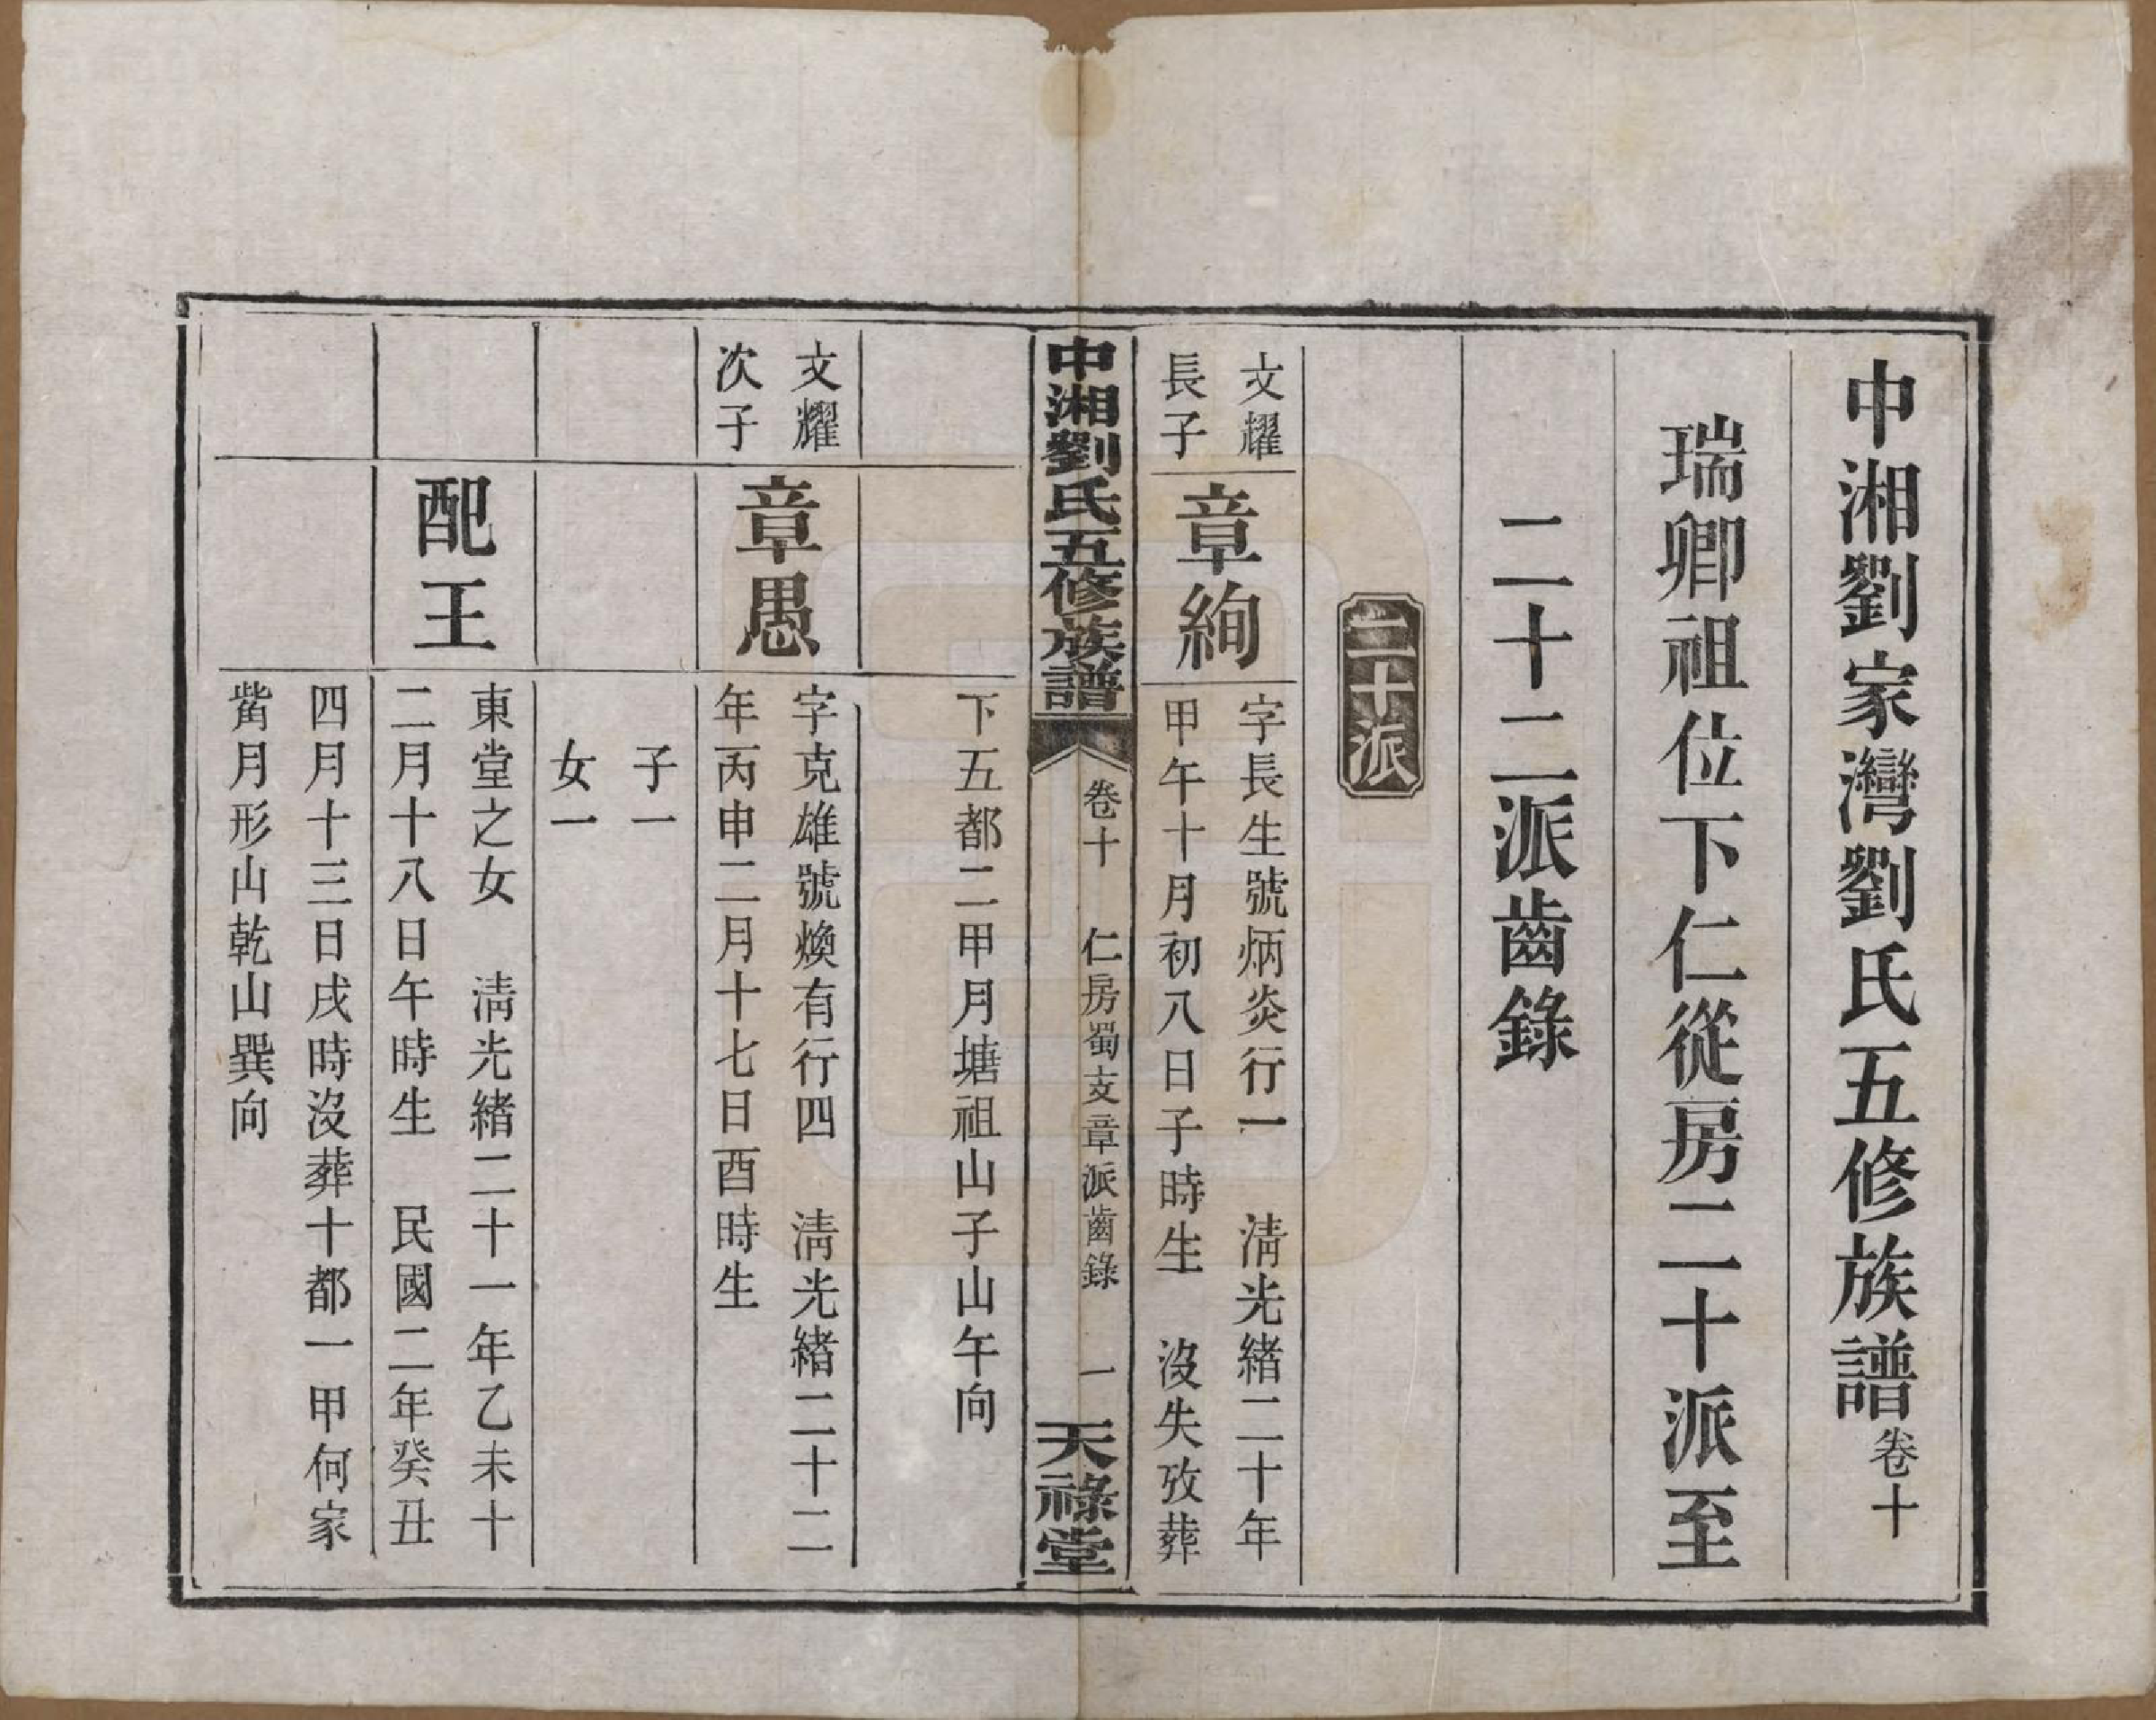 中湘劉家灣劉氏五修族譜卷十
瑞卿祖位下仁從房二十派至
二十二派齒錄
二十派
文耀
長子
章絢
字長生號炳炎行一　淸光緒二十年
甲午十月初八日子時生　沒失攷葬
中湘劉氏五修族譜
卷十　仁房蜀支章派齒錄　一
天祿堂
下五都二甲月塘祖山子山午向
文耀
次子
章愚
字克雄號煥有行四　淸光緒二十二
年丙申二月十七日酉時生
子一
女一
配王
東堂之女　淸光緒二十一年乙未十
二月十八日午時生　民國二年癸丑
四月十三日戌時沒葬十都一甲何家
觜月形山乾山巽向